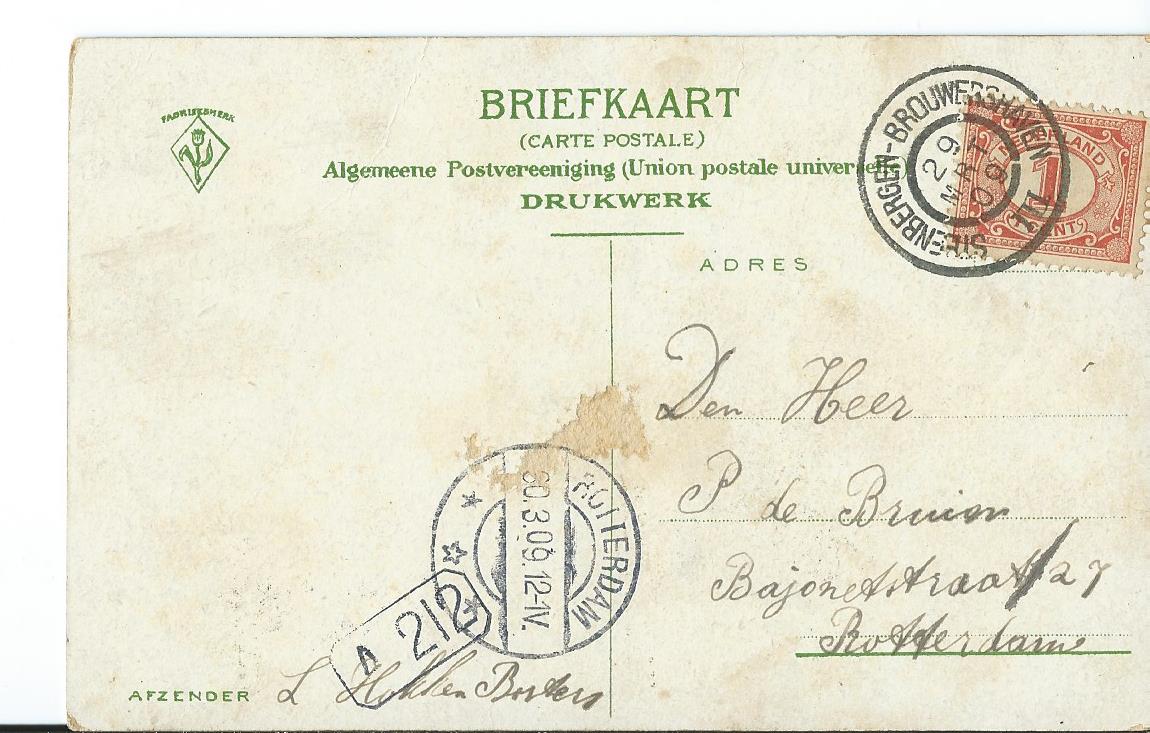 FABRIEKSMERK
BRIEFKAART
(CARTE POSTALE)
Algemeene Postvereeniging (Union postale universelle)
DRUKWERK
STEENBERGEN-BROUWERSHAVEN III
29
MRT
09
NEDERLAND
1
CENT
ADRES
Den Heer
P de Bruin
Bajonetstraat 27
Rotterdam
ROTTERDAM
30.3.09.12-1V.
A 212
AFZENDER L